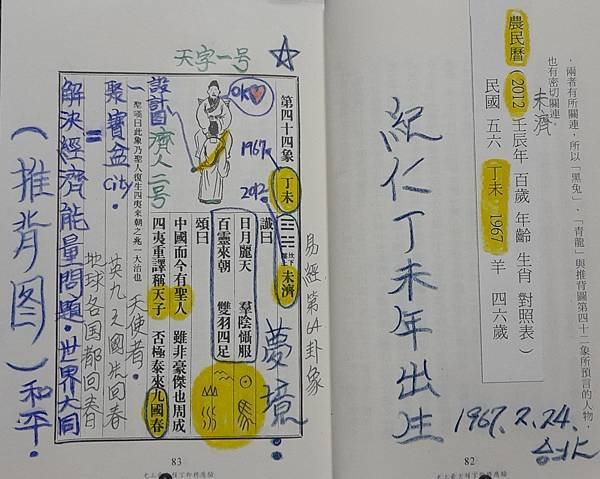 。兩者有所關連，所以「黑兔」、「青龍」與推背圖第四十二象所預言的人物，
也有密切關連。
未濟
農民曆(2012壬辰年 百歲 年齡 生肖 對照表)
民國 五六 丁未 1967 羊 四六歲
紀仁丁未年出生
1967.2.24.
82
天字一号
☆
OK
第四十四象
丁未
1967
2012
未濟
易經第64卦象
讖曰
日月麗天 羣陰懾服
百靈來朝 雙羽四足
夢境
頌曰
中國而今有聖人 雖非豪傑也周成
四夷重譯稱天子 否極泰來九國春
聖嘆曰此象乃聖人復生四夷來朝之兆一大治也
天使者。
設計圖濟人一号
聚寶盆City。
英九之國共回春
地球各国都回春
解決經濟能量問題。世界大同
(推背图)和平。
83